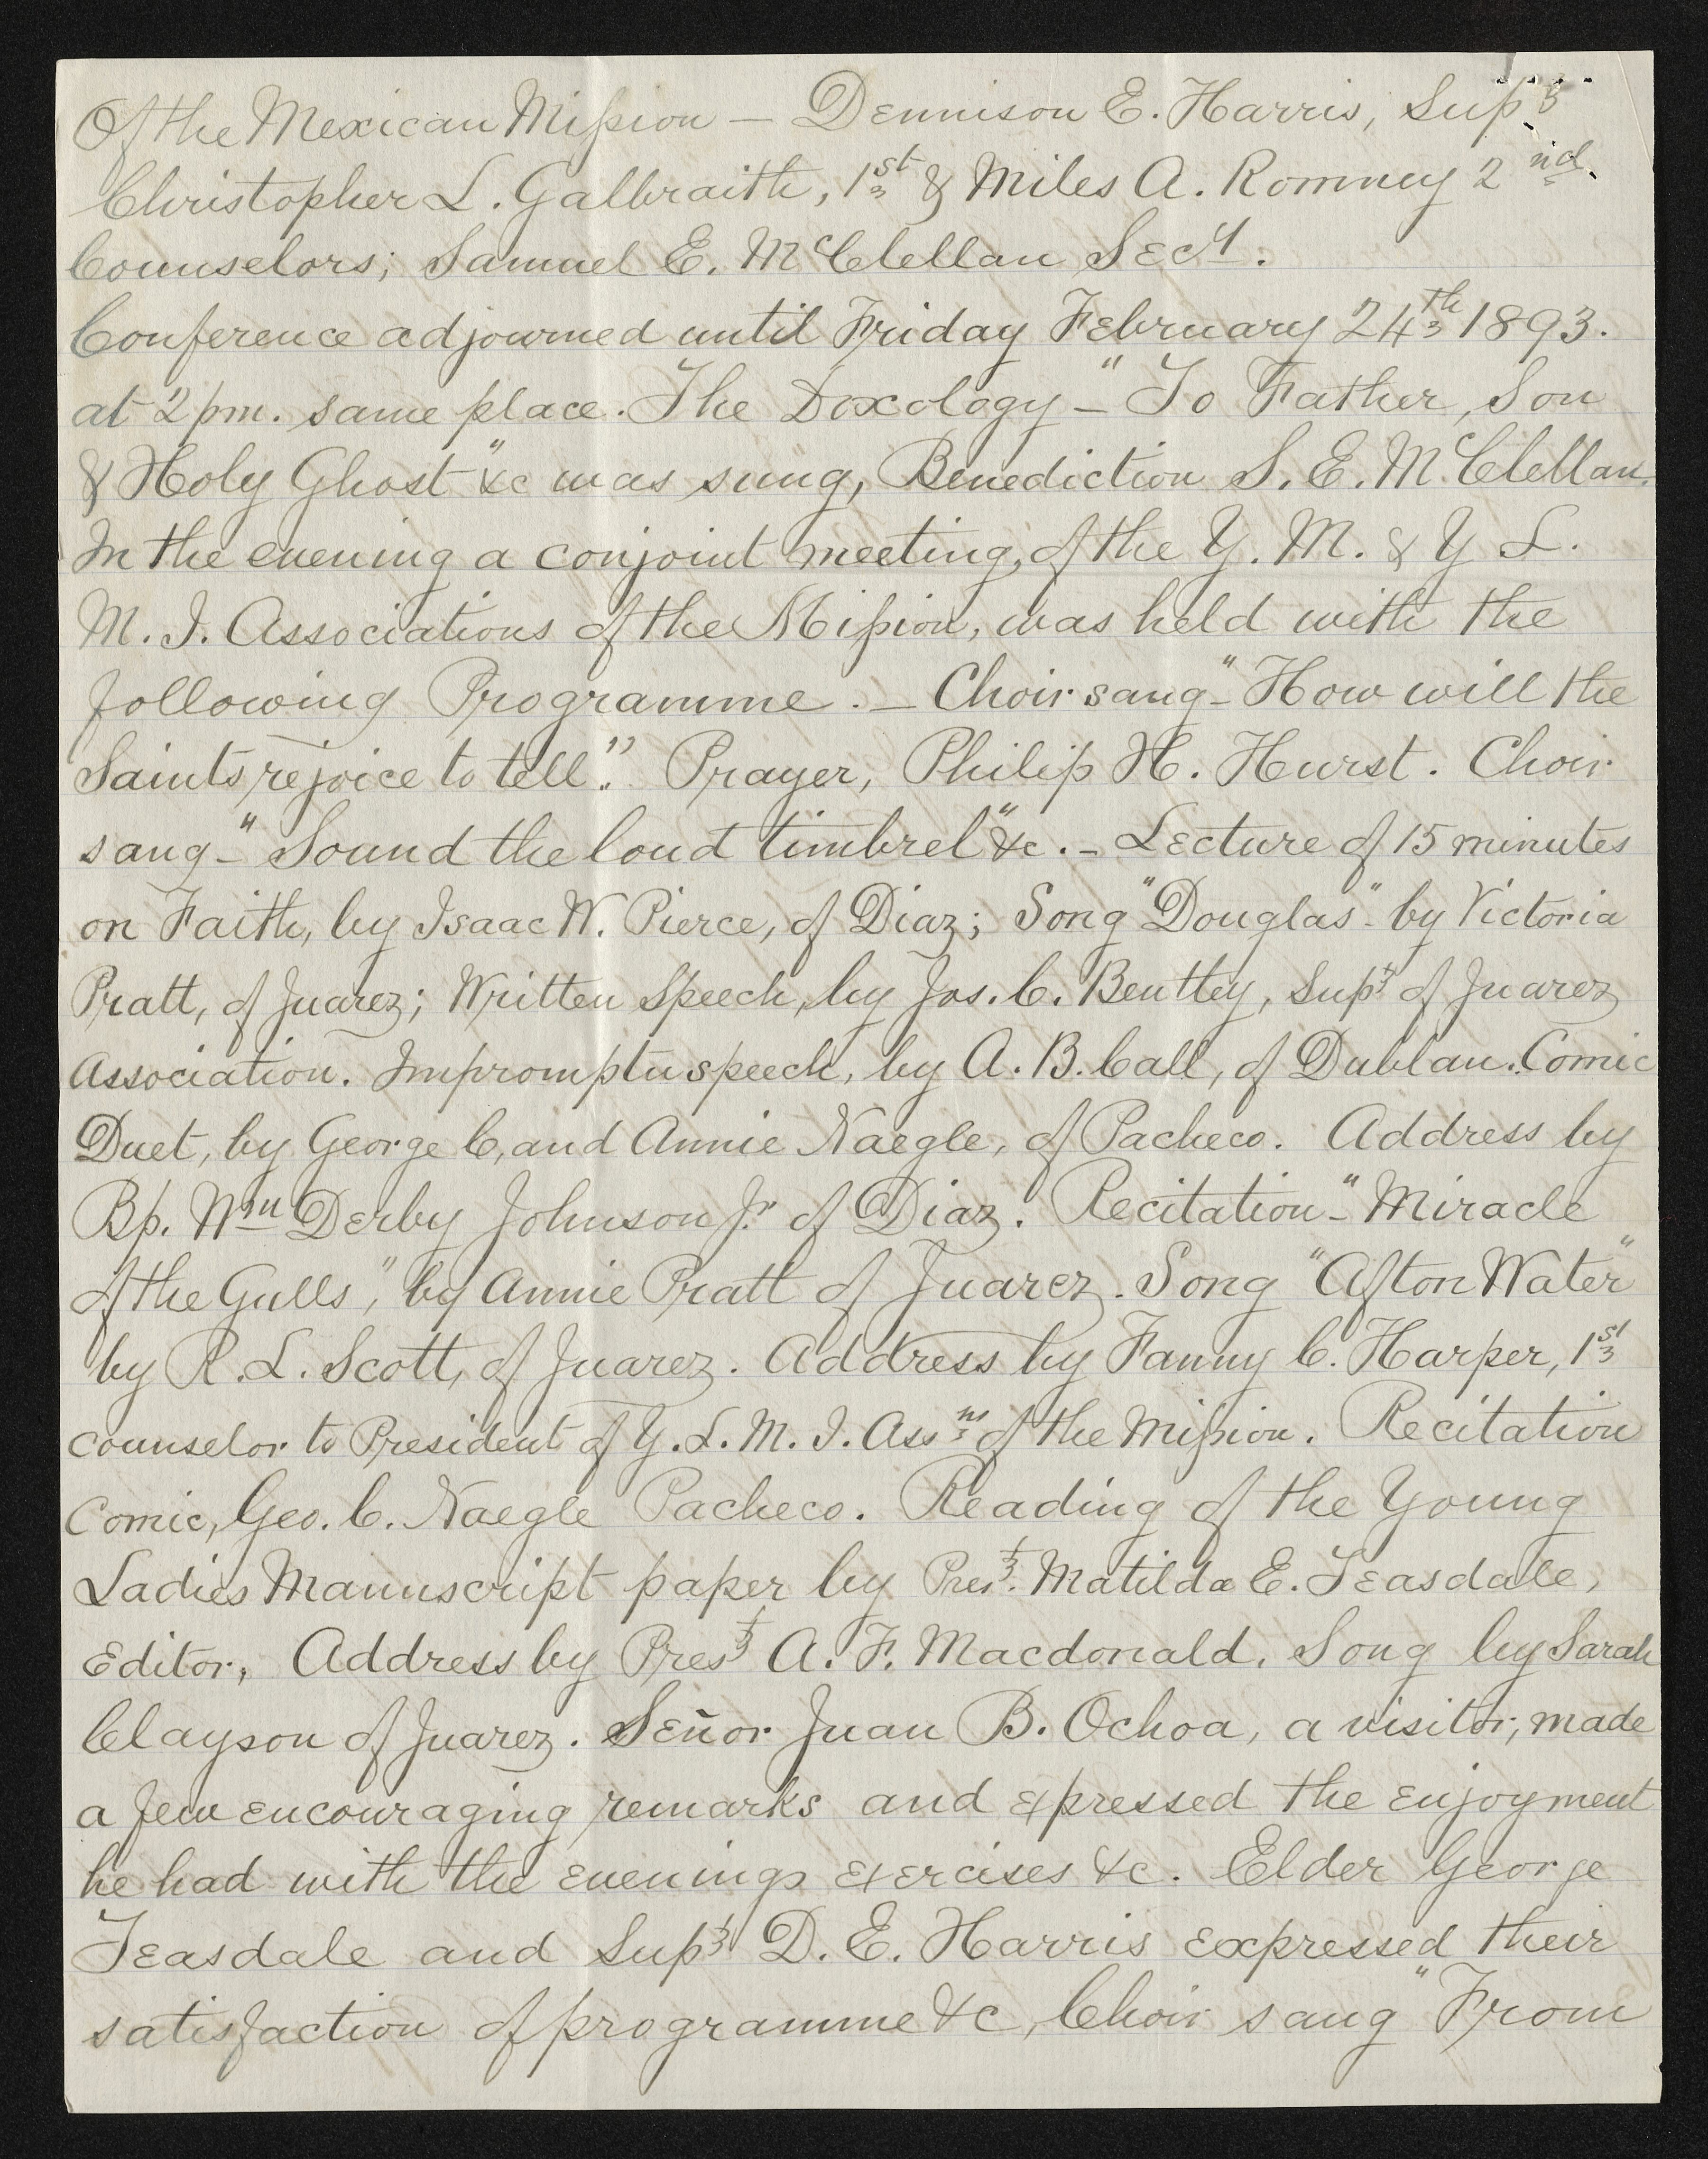 Of the Mexican Mission — Dennison E. Harris, Supt
Christopher L. Galbraith, 1st & Miles A. Romney 2nd
Counselors; Samuel E. McClellan Secy.
Conference adjourned until Friday February 24th 1893.
at 2 pm. same place. The Doxology – "To Father, Son
& Holy Ghost" &c was sung, Benediction S. E. McClellan.
In the evening a conjoint meeting, of the Y. M. & Y L.
M. I. Associations of the Mission, was held with the
following Programme. – Choir sang – "How will the
Saints rejoice to tell". Prayer, Philip H. Hurst. Choir
sang – "Sound the loud timbrel" &c. – Lecture of 15 minutes
on Faith, by Isaac W. Pierce, of Diaz; Song "Douglas" – by Victoria
Pratt, of Juarez; Written Speech, by Jos. C. Bentley, Supt of Juarez
Association. Impromptu speech, by A. B. Call, of Dublan. Comic
Duet, by George C, and Annie Naegle, of Pacheco. Address by
Bp. Wm Derby Johnson Jr of Diaz. Recitation – "Miracle
of the Gulls", by Annie Pratt of Juarez. Song "Afton Water"
by R. L. Scott, of Juarez. Address by Fanny C. Harper, 1st
counselor to President of Y. L. M. I. Assns of the Mission. Recitation
Comic, Geo. C. Naegle Pacheco. Reading of the Young
Ladies Manuscript paper by Prest. Matilda E. Teasdale,
Editor, Address by Prest A. F. Macdonald. Song by Sarah
Clayson of Juarez. Señor Juan B. Ochoa, a visitor, made
a few encouraging remarks and expressed the enjoyment
he had with the evenings exercises &c. Elder George
Teasdale and Supt D. E. Harris expressed their
satisfaction of programme &c, Choir sang "From